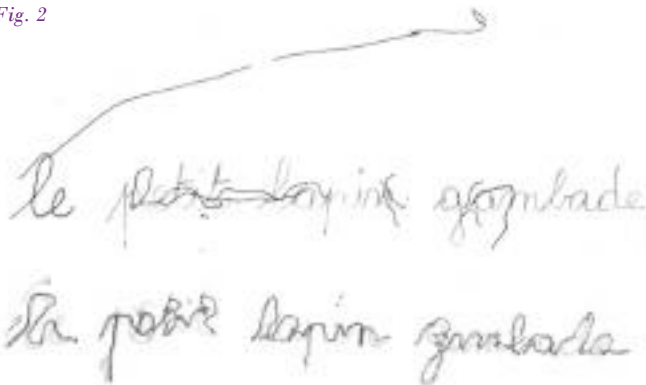 Fig. 2
le petit lapin gambade
petit lapin gambade